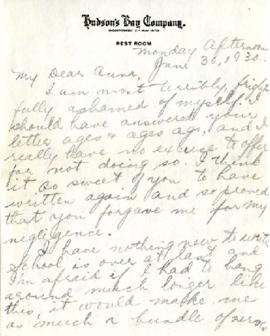 Hudson's Bay Company.
INCORPORATED 2ND MAY 1670
REST ROOM
Monday Afternoon
June 30, 1930.
My Dear Anna,
I am most terribly, fright
fully ashamed of myself. I
should have answered your
letter ages & ages ago, and I
really have no excuse to offer
for not doing so. I think
it so sweet of you to have
written again and so proved
that you forgave me for my
negligence.
I have nothing now to write
School is over at last and
I'm afraid if I had to hang
around much longer like
this, it would make me
as much a bundle of nerv